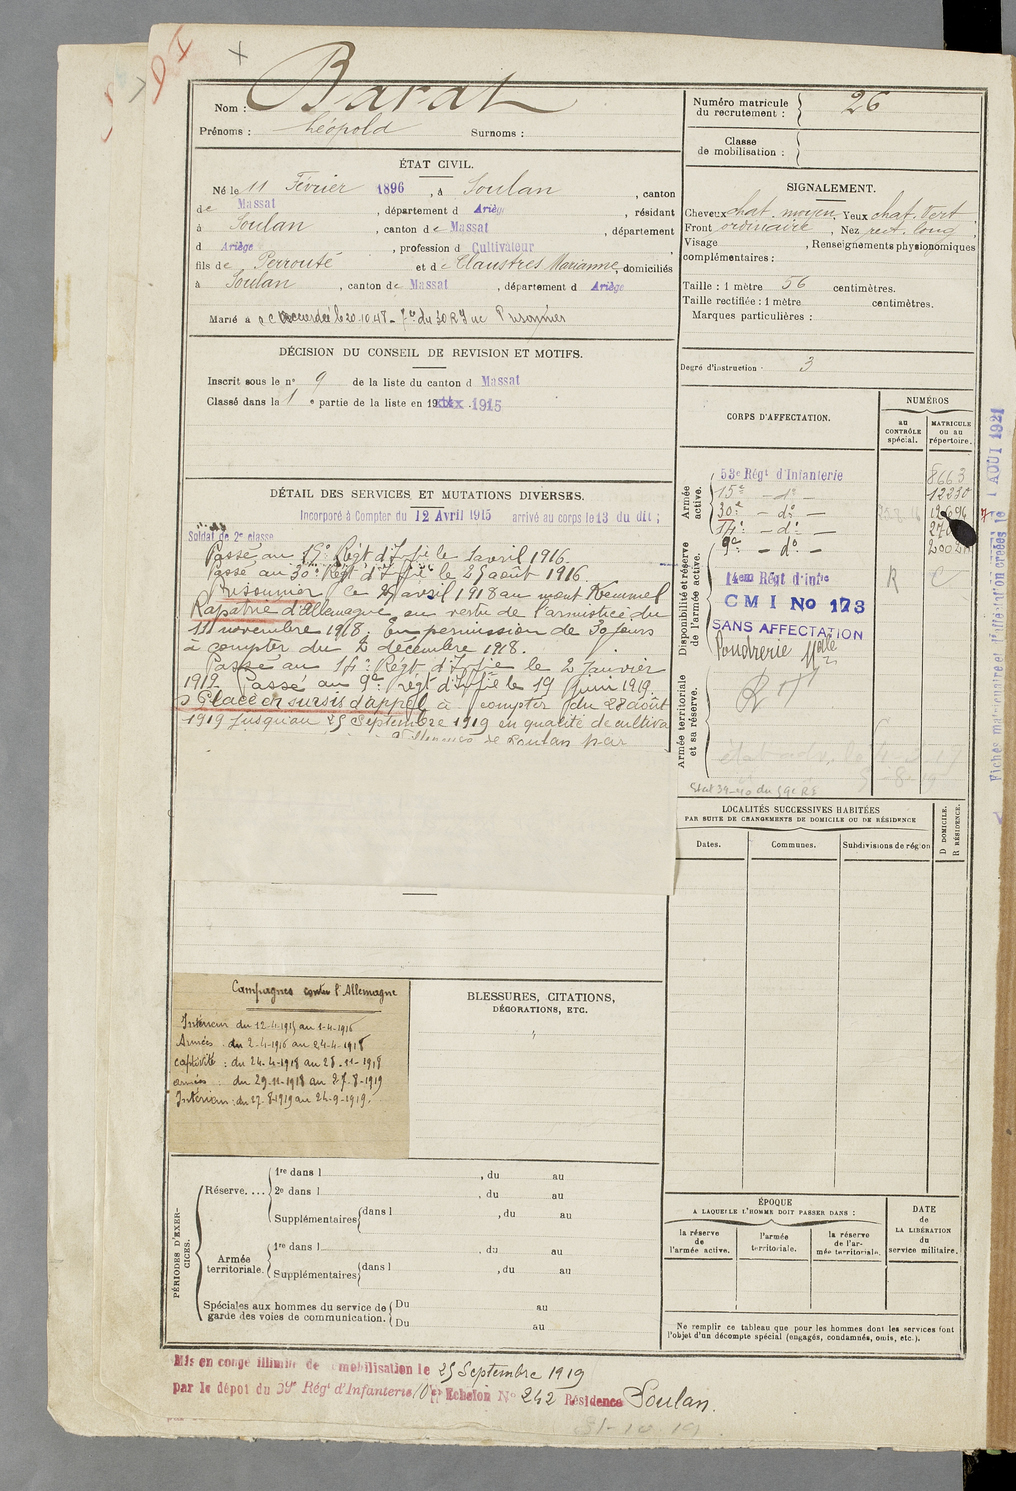 Nom : Barat
Prénoms : Léopold Surnoms :
Numéro matricule du recrutement : 26
Classe de mobilisation :
ÉTAT CIVIL.
Né le 11 Février 1896, à Soulan, canton
de Massat, département d Ariège, résidant
à Soulan, canton de Massat, département
d Ariège, profession d Cultivateur
fils de Perrouté et de Claustres Marianne, domiciliés
à Soulan, canton de Massat, département d Ariège
Marié à
SIGNALEMENT.
Cheveux chat. moyen Yeux chat. vert
Front ordinaire, Nez rect. long
Visage , Renseignements physionomiques
complémentaires :
Taille : 1 mètre 56 centimètres.
Taille rectifiée : 1 mètre centimètres.
Marques particulières :
Degré d'instruction : 3
DÉCISION DU CONSEIL DE REVISION ET MOTIFS.
Inscrit sous le n° 9 de la liste du canton d Massat
Classé dans la 1 e partie de la liste en 1915
DÉTAIL DES SERVICES ET MUTATIONS DIVERSES.
Incorporé à Compter du 12 Avril 1915 arrivé au corps le 13 du dit ;
Soldat de 2e classe
Passé au 15e Régt d'Infie le 1 avril 1916
Passé au 30e Régt d'Infie le 25 août 1916.
Prisonnier le 25 avril 1918 au mont Kemmel
Rapatrié d'Allemagne au vertu de l'armistice du
11 novembre 1918. En permission de 30 jours
à compter du 2 décembre 1918.
Passé au 14e Régt d'Infie le 2 Janvier
1919. Passé au 9e régt d'Infie le 19 juin 1919.
Placé en sursis d'appel à compter du 28 août
1919 jusqu'au 25 Septembre 1919 en qualité de cultiva
de Soulan par
CORPS D'AFFECTATION.
NUMÉROS
au CONTRÔLE spécial.
MATRICULE ou au répertoire.
Armée active.
53e Régt d'Infanterie 8663
15e - do - 12230
30e - do -
14e - do -
9e - do -
Disponibilité et réserve de l'armée active.
14em Régt d'Infie R C
CMI No 173
SANS AFFECTATION
Poudrerie
Armée territoriale et sa réserve.
Fiches matriculaire et d'affectation créées le 1 AOUT 1921
LOCALITÉS SUCCESSIVES HABITÉES
PAR SUITE DE CHANGEMENTS DE DOMICILE OU DE RÉSIDENCE
Dates. Communes. Subdivisions de région
D DOMICILE.
R RÉSIDENCE.
Campagnes contre l'Allemagne
Intérieur du 12-4-1915 au 1-4-1916
Armées du 2-4-1916 au 24-4-1918
captivité : du 24-4-1918 au 28-11-1918
armées du 29-11-1918 au 27-8-1919
Intérieur : du 27-8-1919 au 24-9-1919.
BLESSURES, CITATIONS,
DÉCORATIONS, ETC.
PÉRIODES D'EXERCICES.
Réserve....
1re dans l , du au
2e dans l , du au
Supplémentaires dans l , du au
Armée territoriale.
1re dans l , du au
Supplémentaires dans l , du au
Spéciales aux hommes du service de garde des voies de communication.
Du au
Du au
ÉPOQUE
A LAQUELLE L'HOMME DOIT PASSER DANS :
la réserve de l'armée active.
l'armée territoriale.
la réserve de l'armée territoriale.
DATE de LA LIBÉRATION du service militaire.
Ne remplir ce tableau que pour les hommes dont les services font
l'objet d'un décompte spécial (engagés, condamnés, omis, etc.).
Mis en congé illimité de démobilisation le 25 Septembre 1919
par le dépot du Régt d'Infanterie Echelon No 242 Résidence Soulan.